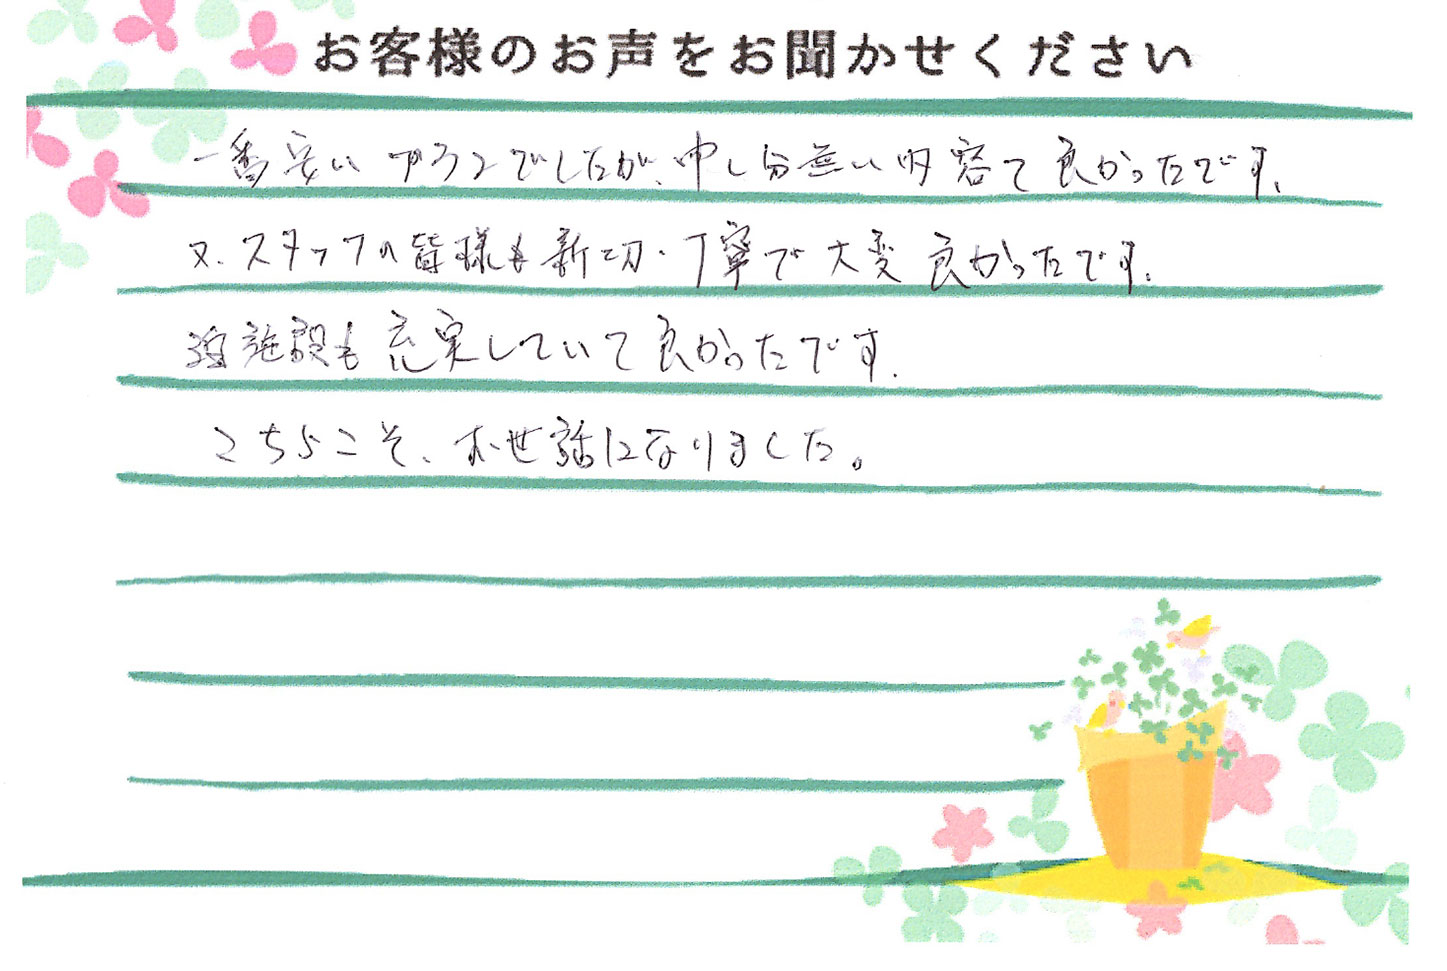 お客様のお声をお聞かせください
一番安いプランでしたが、申し分無い内容で良かったです。
又、スタッフの皆様も新切・丁寧で大変良かったです。
施設も充実していて良かったです。
こちらこそ、お世話になりました。